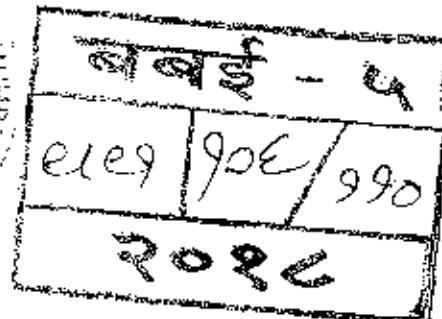 बबई - ५
९८९१ १०६/११०
२०१८